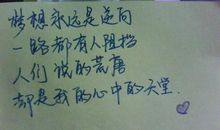 梦想永远是逆向
一路都有人阻挡
人们说的荒唐
却是我的心中的天堂.